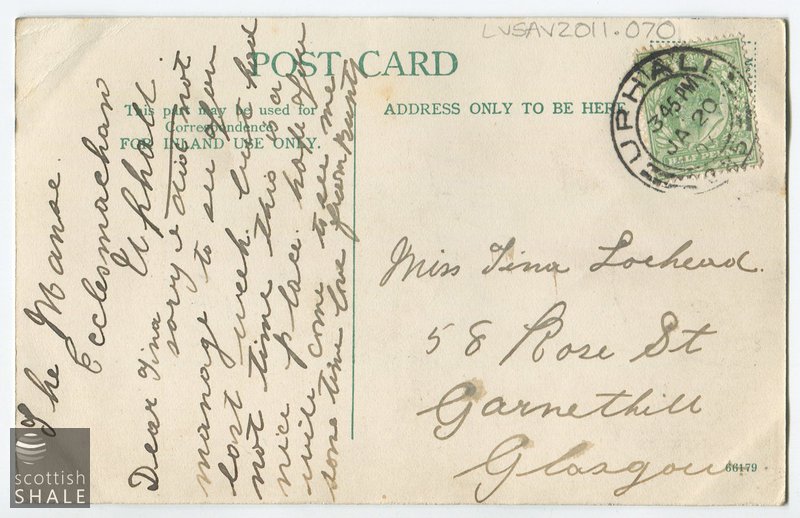 LVSAV2011.070
POST CARD
This part may be used for
Correspondence
FOR INLAND USE ONLY.
ADDRESS ONLY TO BE HERE
UPHALL
3 45 PM
JA 20
HALF PENNY
The Manse
Ecclesmachan
Uphall.
Dear Tina
sorry I did not
manage to see you
last week but had
not time this is a
nice place hope you
will come to see me
some time love from aunt
Miss Tina Lochead.
58 Rose St
Garnethill
Glasgow
66179
scottish
SHALE